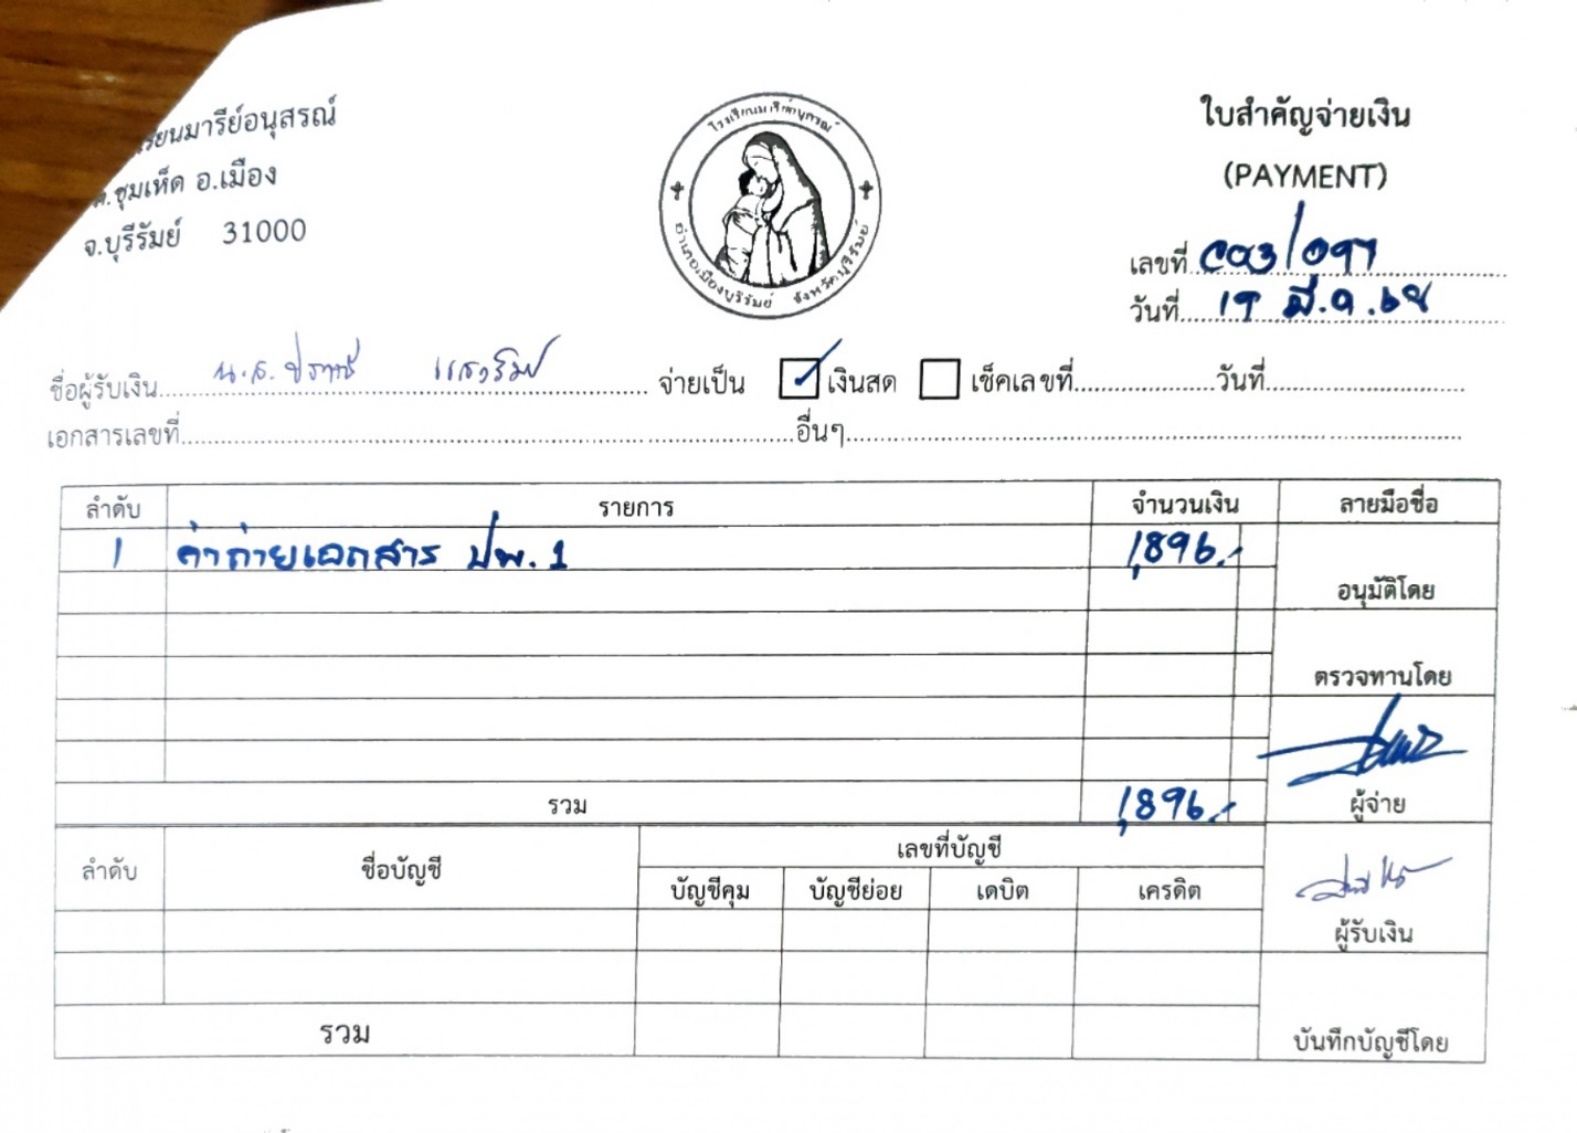 เรียนมารีย์อนุสรณ์
ต.ชุมเห็ด อ.เมือง
จ.บุรีรัมย์ 31000
โรงเรียนมารีย์อนุสรณ์
อำเภอเมืองบุรีรัมย์ จังหวัดบุรีรัมย์
ใบสำคัญจ่ายเงิน
(PAYMENT)
เลขที่ C03/097
วันที่ 19 มี.ค. 68
ชื่อผู้รับเงิน น.ส. จ่ายเป็น เงินสด เช็คเลขที่ วันที่
เอกสารเลขที่ อื่นๆ
ลำดับ รายการ จำนวนเงิน ลายมือชื่อ
1 ค่าถ่ายเอกสาร ปพ.1 1,896.-
อนุมัติโดย
ตรวจทานโดย
รวม 1,896.- ผู้จ่าย
ลำดับ ชื่อบัญชี เลขที่บัญชี
บัญชีคุม บัญชีย่อย เดบิต เครดิต
ผู้รับเงิน
รวม บันทึกบัญชีโดย